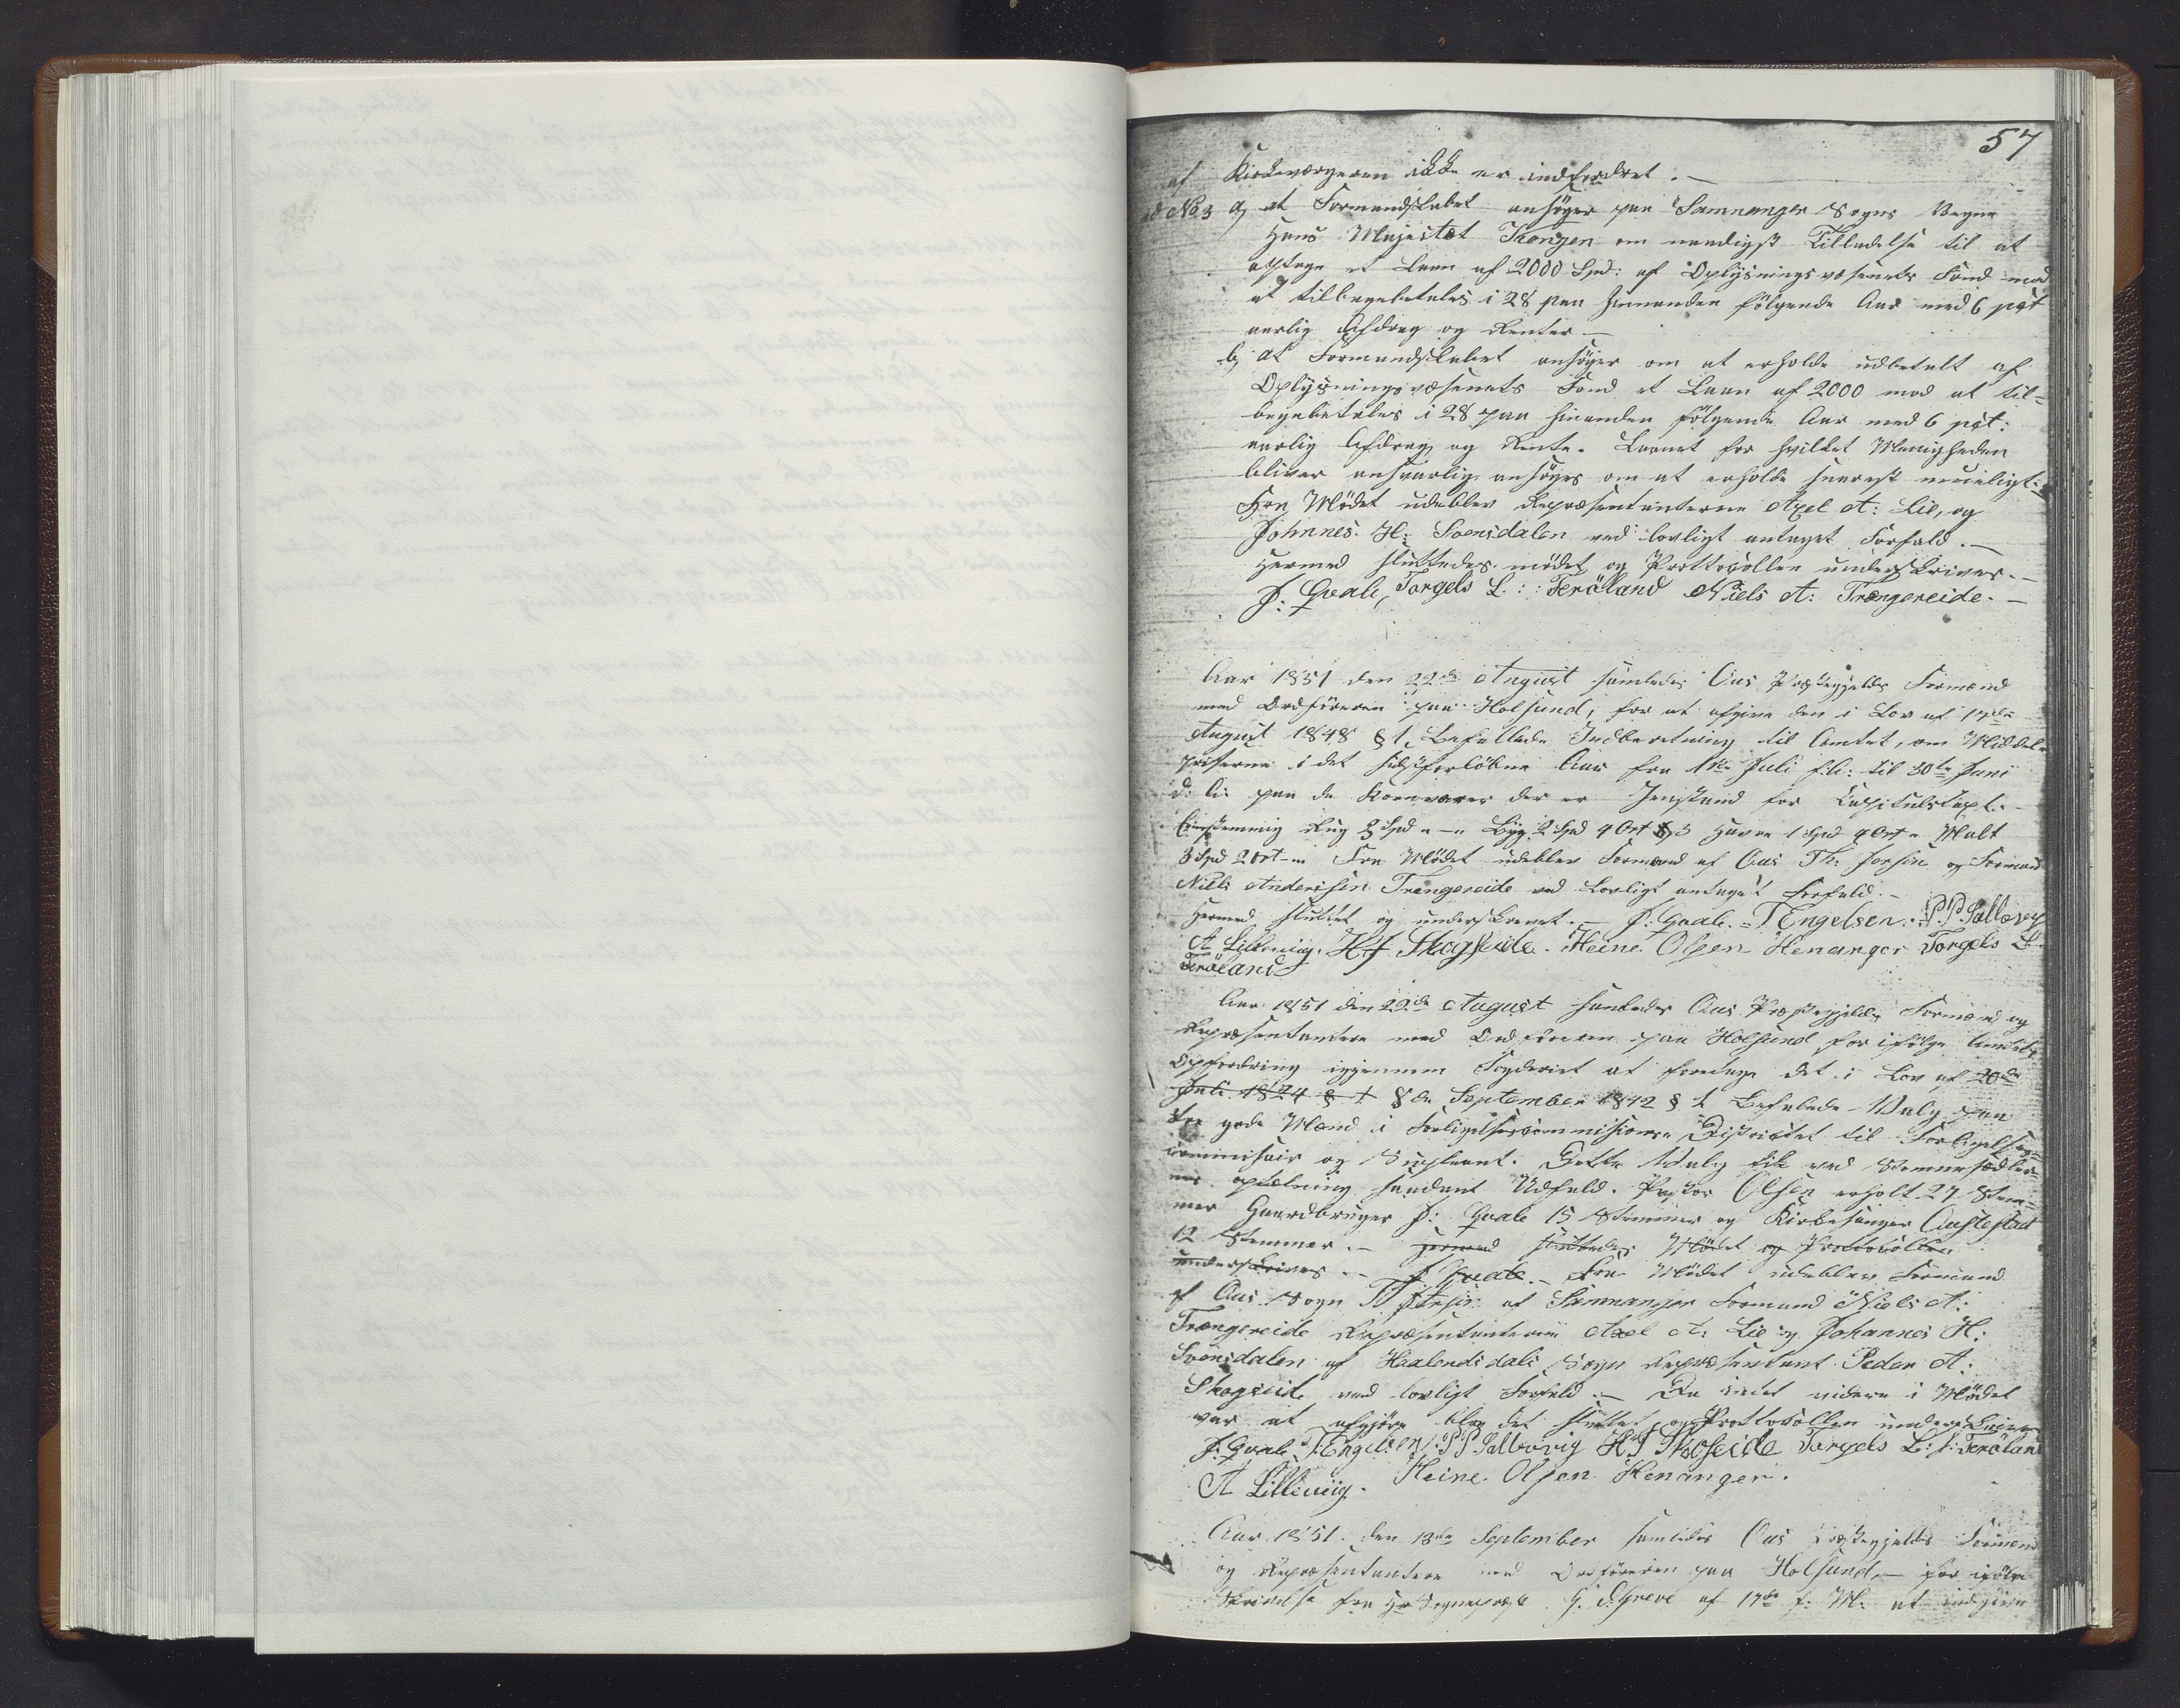 57
af Kirkeværgeren ikke er indfordret. —
ad No 3 a, at Formandskabet ansøger paa Samnanger Sogns Vegne
Hans Majestæt Kongen om naadigst Tilladelse til at
optage et Laan af 2000 Spd: af Oplysningsvæsenets Fond mod
at tilbagebetales i 28 paa hinanden følgende Aar med 6 pCt
aarlig Afdrag og Renter —
b, at Formandskabet ansøger om at erholde udbetalt af
Oplysningsvæsenets Fond et Laan af 2000 mod at til-
bagebetales i 28 paa hinanden følgende Aar med 6 pCt:
aarlig Afdrag og Rente. Laanet for hvilket Menigheden
bliver ansvarlig ansøges om at erholde snarest mueligt.
Fra Mødet udeblev Repræsentanterne Axel A: Lie, og
Johannes H: Svensdalen ved lovligt antaget Forfald. —
Hermed sluttedes mødet og Prottocollen underskrives. —
J: Qvale, Torgels L: Frøland Niels A: Trængereide. —
Aar 1851 den 22de August samledes Ous Præstegjelds Formænd
med Ordføreren paa Holsund, for at afgive den i Lov af 17de
August 1848 § 1 Befallede Indberetning til Amtet, om Middel-
priserne i det sidstforløbne Aar fra 1ste Juli f. A: til 30te Juni
d: A: paa de Kornvarer der er Gjenstand for Capitelstaxt. —
Eenstemmig Rug 3 Spd " — " Byg 2 Spd 4 Ort Havre 1 Spd 4 Ort " Malt
3 Spd 2 Ort — Fra Mødet udeblev Formand af Ous Th: og Formand
Niels Anderssen Trengereide ved Lovligt antaget Forfald. —
Hermed sluttet og underskrevet. — J: Qvale. = T Engelsen. P. P. Søllesvig
A Lillevig. H J Skogseide. Heine Olsen Henanger Torgels L
Frøland
Aar 1851 den 22de August samledes Ous Præstegjelds Formænd og
Repræsentantere med Ordføreren paa Holsund for ifølge Amtets
Opfordring igjennem Fogderiet at foretage det i Lov af 20de
Juli 1824 § 1 8de September 1842 § 1 Befalede Valg paa
tre gode Mænd i Forligelsescommissions Districtet til Forligelses-
commisair og Supleant. Dette Valg fik ved Stemmesedler-
nes optælning saadant Udfald. Pastor Olsen erholt 27 Stem-
mer Gaardbruger J: Qvale 15 Stemmer og Kirkesanger Austestad
12 Stemmer. — Hermed sluttedes Mødet og Prottocollen
underskrives. — J Qvale. — Fra Mødet udeblev Formand
af Ous Sogn af Samnanger Formand Niels A:
Trængereide Repræsentanterne Axel A: Lie og Johannes H:
Svensdalen af Haalandsdals Sogn Repræsentant Peder A:
Skogseide ved lovligt Forfald. — Da intet videre i Mødet
var at afgjøre blev det sluttet og Prottocollen underskreven
J: Qvale, T. Engelsen. P P Søllesvig H J Skoseide Torgels L: Frøland
A Lillevig. Heine Olsen Henanger.
Aar 1851 den 13de September samledes Ous Præstegjelds Formænd
og Repræsentantere med Ordføreren paa Holsund — for ifølge
Skrivelse fra Hr Sogneprest G. D. Greve af 17de f: M: at indgive